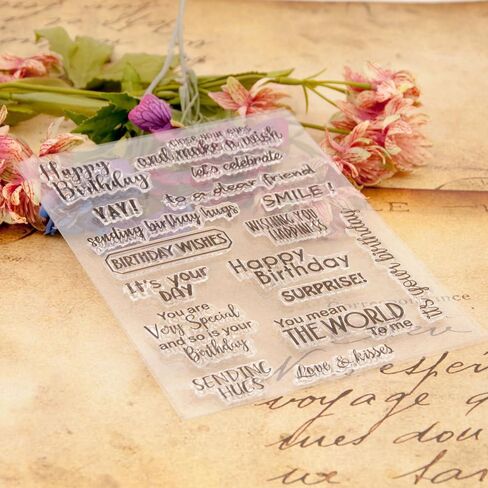 close your eyes
and make a wish
Happy
Birthday
let's celebrate
to a dear friend
YAY!
SMILE!
sending birthday hugs
WISHING YOU
HAPPINESS
it's your birthday
BIRTHDAY WISHES
Happy
Birthday
It's your
DAY
SURPRISE!
You are
Very Special
and so is your
Birthday
You mean
THE WORLD
to me
SENDING
HUGS
Love & kisses
especi
voyage qu
nues dou
ve star